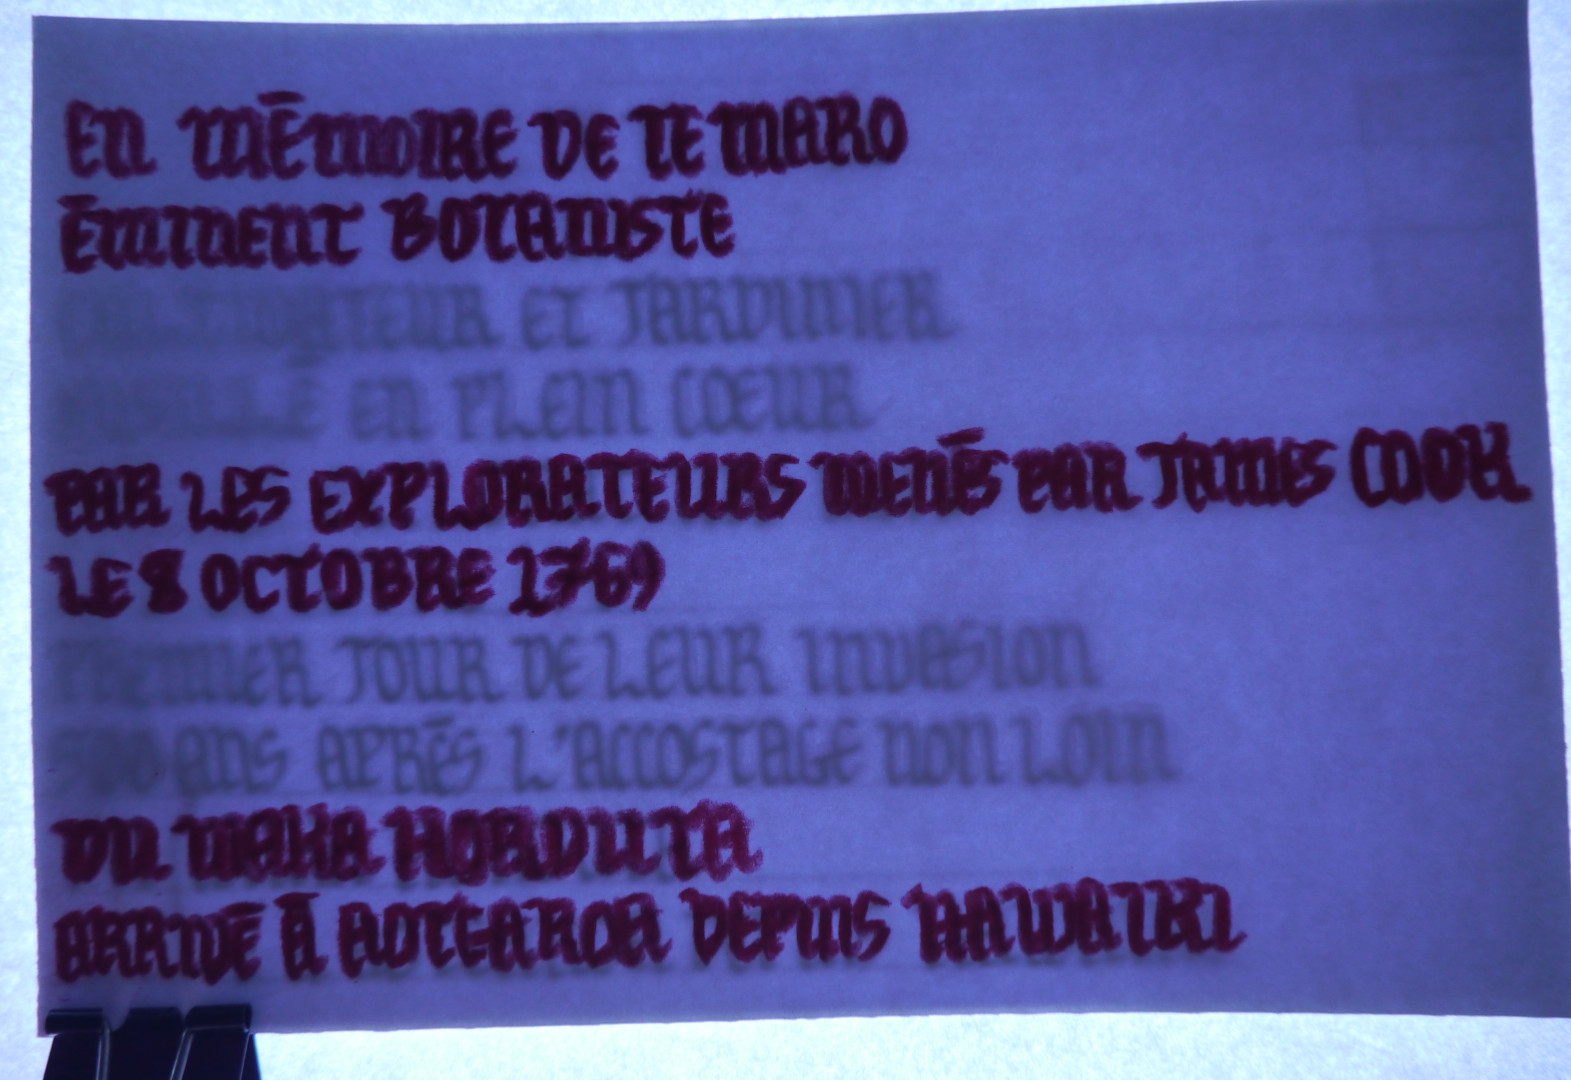 EN MÉMOIRE DE TE MARO
ÉMINENT BOTANISTE
CULTIVATEUR ET JARDINIER
FUSILLÉ EN PLEIN CŒUR
PAR LES EXPLORATEURS MENÉS PAR JAMES COOK
LE 8 OCTOBRE 1769
PREMIER JOUR DE LEUR INVASION
ANS APRÈS L'ACCOSTAGE NON LOIN
DU WAKA HOROUTA
ARRIVÉ À AOTEAROA DEPUIS HAWAIKI